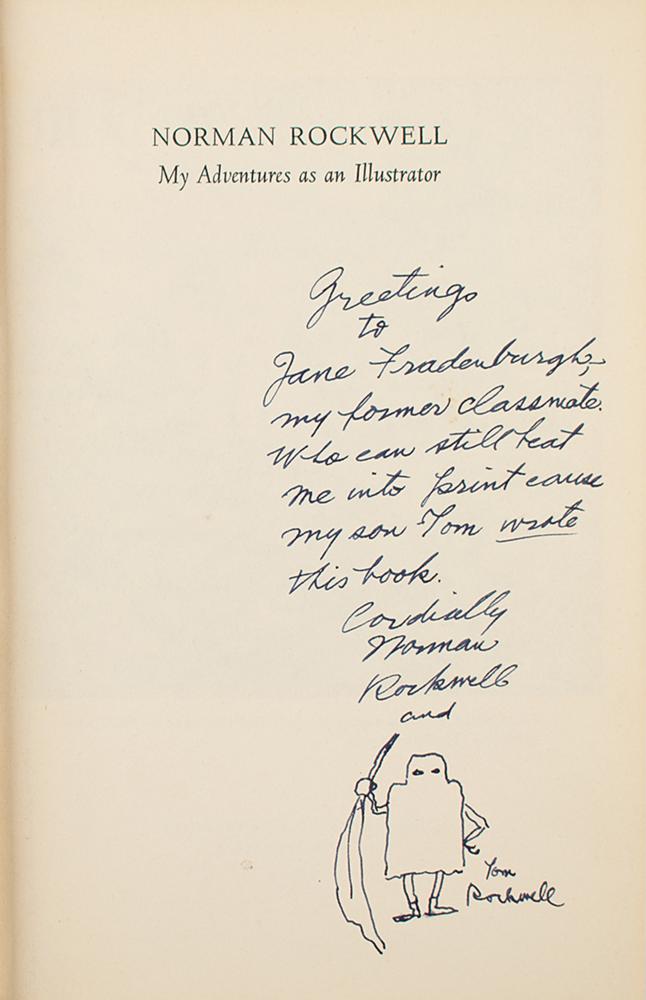 NORMAN ROCKWELL
My Adventures as an Illustrator
Greetings
to
Jane Fradenburgh,
my former classmate.
Who can still beat
me into print cause
my son Tom wrote
this book.
Cordially
Norman
Rockwell
and
Tom
Rockwell